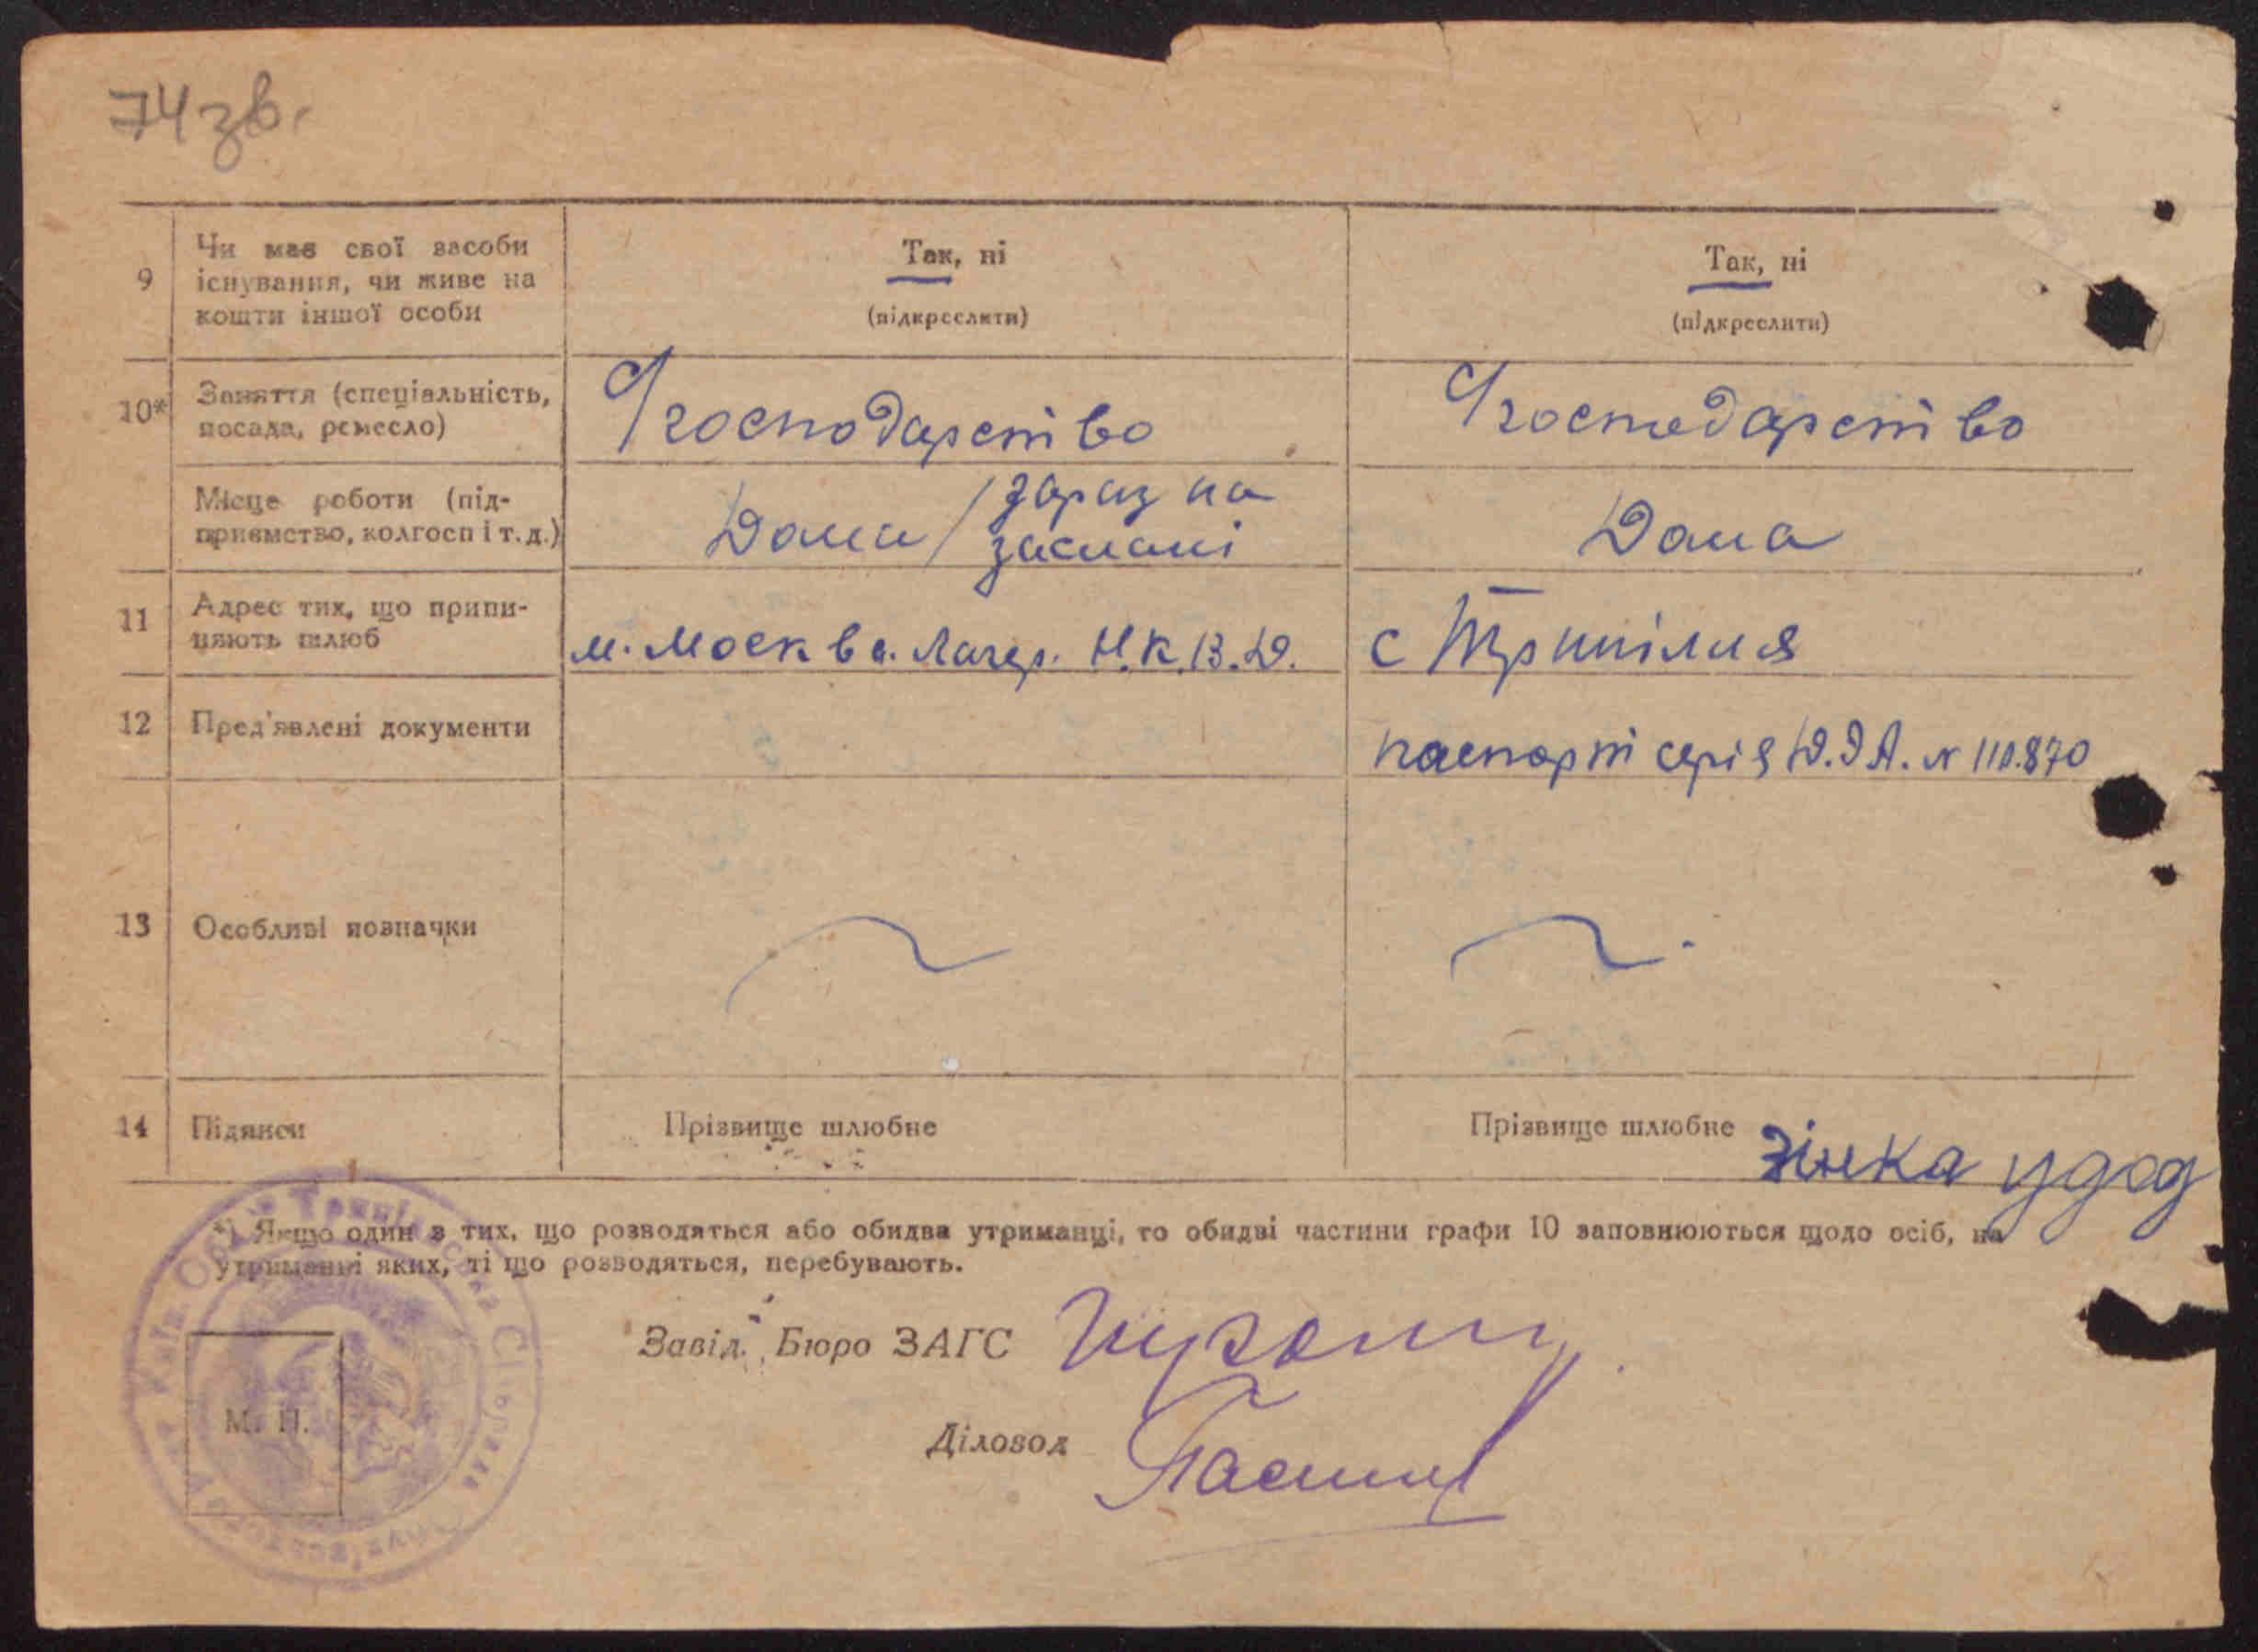 74 зв.
9 Чи має свої засоби існування, чи живе на кошти іншої особи
Так, ні
(підкреслити)
Так, ні
(підкреслити)
10* Заняття (спеціальність, посада, ремесло)
Господарство
Господарство
Місце роботи (підприємство, колгосп і т. д.)
Дома / зараз на заслані
Дома
11 Адрес тих, що припиняють шлюб
м. Москва. Лагер. Н.К.В.Д.
с Трипілля
12 Пред'явлені документи
паспорт серія Д.Э А. № 110.870
13 Особливі позначки
14 Підписи
Прізвище шлюбне
Прізвище шлюбне Зінка удод
*) Якщо один з тих, що розводяться або обидва утриманці, то обидві частини графи 10 заповнюються щодо осіб, на
утриманні яких, ті що розводяться, перебувають.
Завід. Бюро ЗАГС
Діловод
М. П.